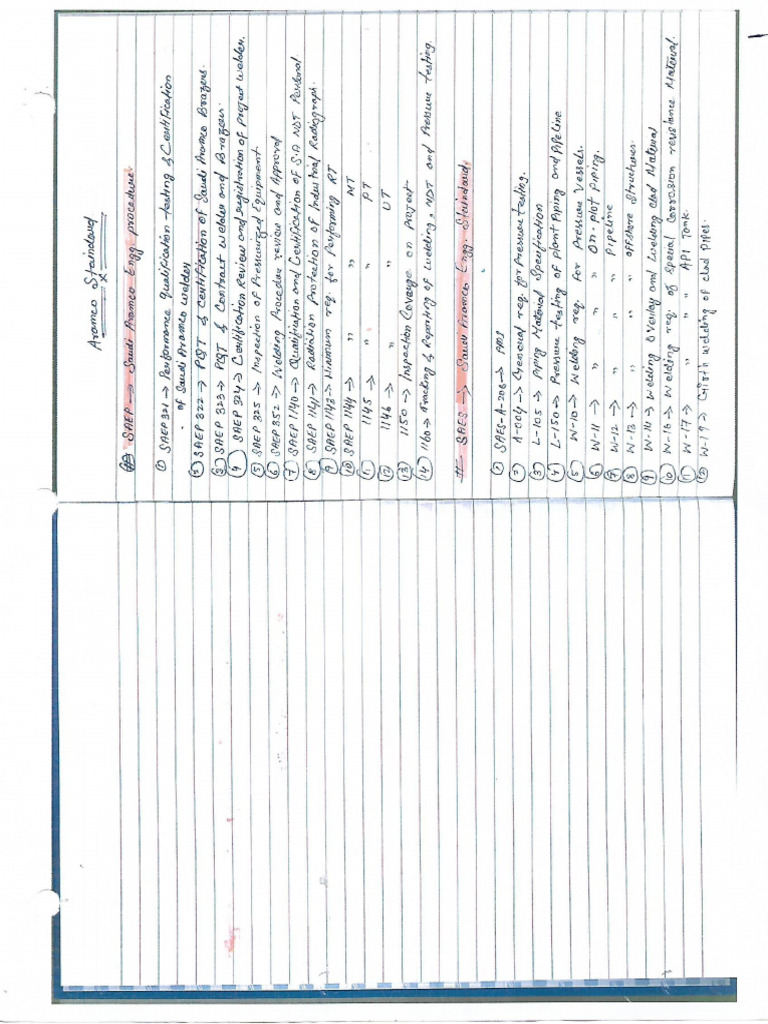 Aramco Standard
SAEP → Saudi Aramco Engg procedure.
① SAEP 321 → Performance Qualification testing & Certification
of Saudi Aramco welder
② SAEP 322 → PQT & Certification of Saudi Aramco Brazers.
③ SAEP 323 → PQT & Contract welder and Brazers.
④ SAEP 324 → Certification Review and registration of project welder.
⑤ SAEP 325 → Inspection of Pressurized Equipment
⑥ SAEP 352 → Welding Procedure review and Approval
⑦ SAEP 1140 → Qualification and Certification of S.A NDT Personal
⑧ SAEP 1141 → Radiation Protection of Industrial Radiograph.
⑨ SAEP 1143 → Minimum req. for Performing RT
⑩ SAEP 1144 → " " MT
⑪ 1145 → " " PT
⑫ 1146 → " " UT
⑬ 1150 → Inspection Coverage on Project
⑭ 1160 → Tracking & Reporting of welding, NDT and Pressure testing.
# SAES → Saudi Aramco Engg. Standard.
① SAES-A-206 → PMI
② A-004 → General req. for Pressure testing.
③ L-105 → Piping Material Specification
④ L-150 → Pressure testing of Plant Piping and Pipeline
⑤ W-10 → Welding req. for Pressure Vessels.
⑥ W-11 → " " On-plot Piping.
⑦ W-12 → " " Pipeline
⑧ W-13 → " " offshore Structures.
⑨ W-14 → Welding Overlay and Welding clad Material
⑩ W-16 → Welding req. of Special Corrosion resistance Material.
⑪ W-17 → " " API Tank.
⑫ W-19 → Girth welding of clad Pipes.